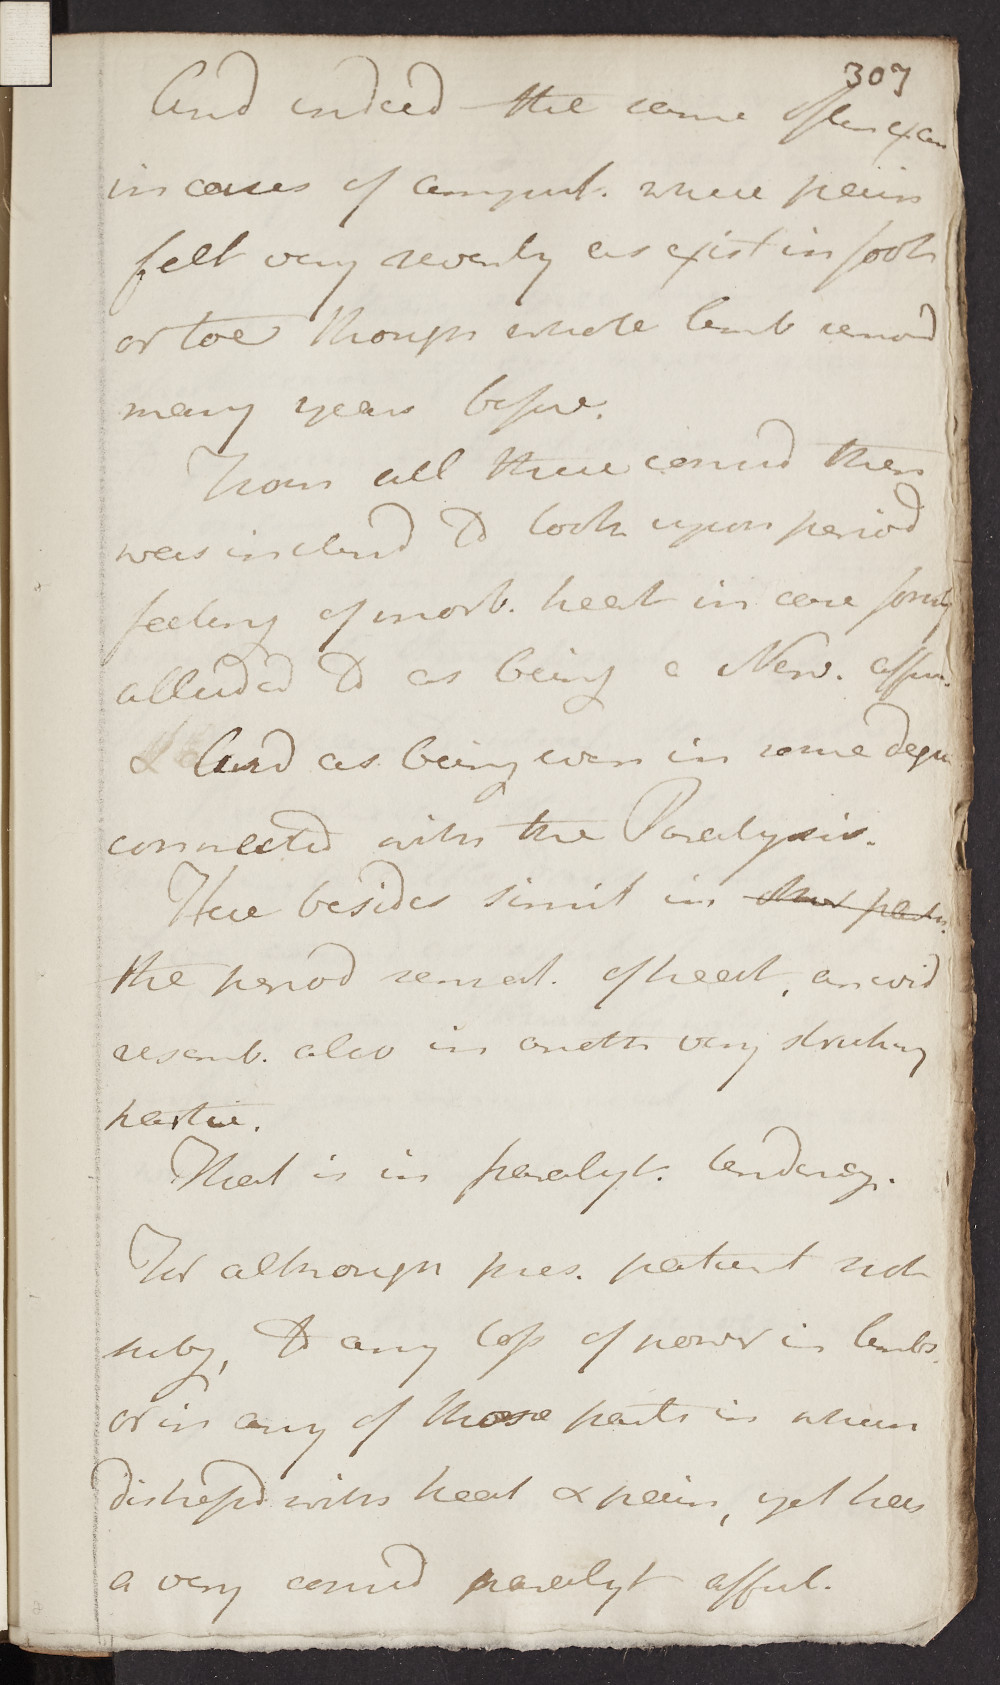 307
And indeed the same often exam
in cases of amput. where pain
felt very severely as exist in foot
or toe though whole limb remov'd
many years before.
From all these consid then
was inclind to look upon period
feeling of morb. heat in case formly
alluded to as being a Nerv. affec.
& And as being even in some degre
connected with the Paralysis.
Here besides simil in other partic.
the period remat. of heat, an evid
resemb. also in anoth very striking
partic.
That is in paralyt. tendency.
For although pres. patient not
subj, to any loss of power in limbs.
or in any of those parts in whch
distressd with heat & pain, yet has
a very consid paralyt affect.